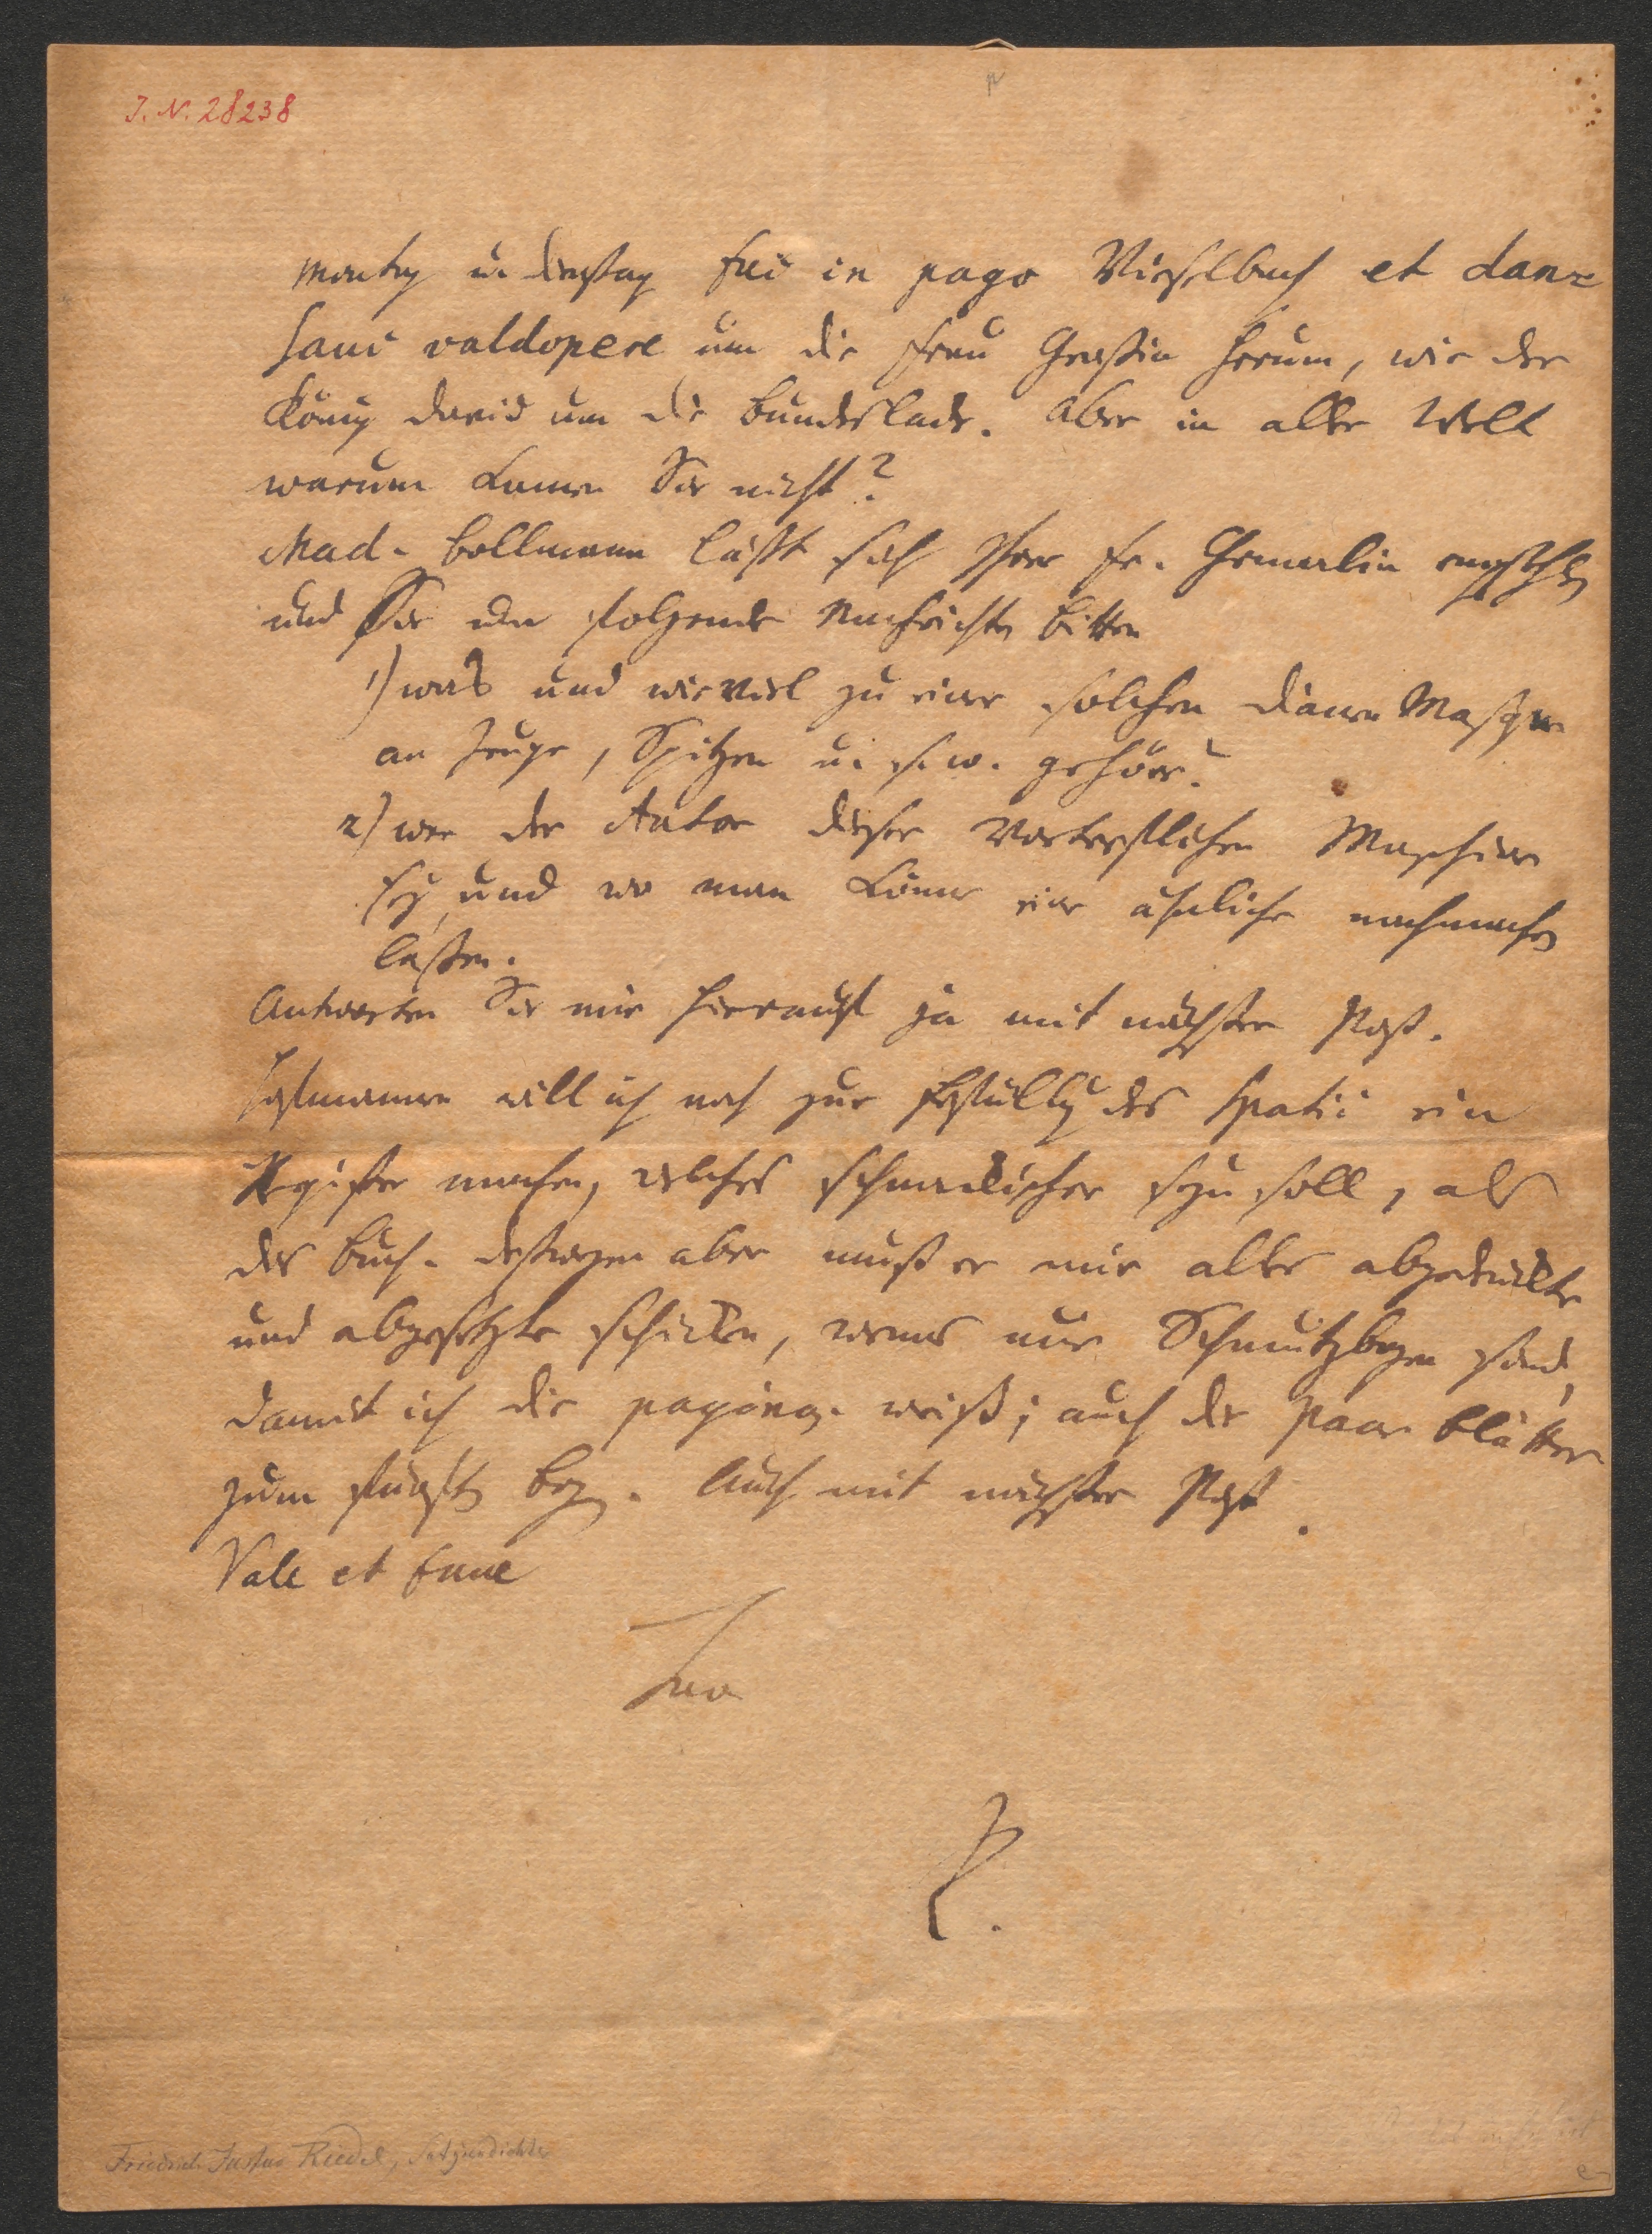 J. N. 28238
Montag u. dienstag fui in pago Vieselbach et danz-
savi valdopere um die Frau Gräfin herum, wie der
König david um die Bundeslade. Aber in aller Welt
warum kamen Sie nicht?
Mad. Bollmann läßt sich Ihrer Fr. Gemalin empfehlen
und Sie um folgende Nachrichten bitten
1) was und wieviel zu einer solchen Masque
an Zeuge, Spitzen u. s. w. gehöre?
2) wer der Autor dieser vortreflichen Maschine
sey, und wo man könne eine ähnliche nachmachen
laßen.
Antworten Sie mir hierauf ja mit nächster Post.
will ich noch zur des Spatii ein
Register machen, welches seyn soll, als
das Buch. deßwegen aber muß er mir alles abgedrukte
und abgesetzte schicken, wenns nur Schmutzbogen sind,
damit ich die weiß; auch die paar Blätter
zum Bog. Auch mit nächster Post.
Vale et fave
Tuo
R.
Friedrich Justus Riedel, Satyrendichter